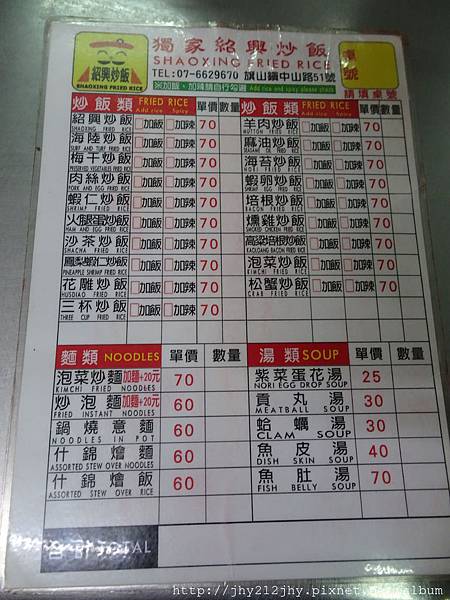 獨家紹興炒飯
SHAOXING FRIED RICE
紹興炒飯
SHAOXING FRIED RICE
TEL:07-6629670 旗山鎮中山路51號
※加飯、加辣請自行勾選 Add rice and spicy please check
桌號
請填桌號
炒飯類 FRIED RICE Add rice Spicy 單價 數量
紹興炒飯 □加飯 □加辣 70
SHAOXING FRIED RICE
海陸炒飯 □加飯 □加辣 70
SURF AND TURF FRIED RICE
梅干炒飯 □加飯 □加辣 70
PRESERVED VEGETABLES FRIED RICE
肉絲炒飯 □加飯 □加辣 70
PORK AND EGG FRIED RICE
蝦仁炒飯 □加飯 □加辣 70
SHRIMP FRIED RICE
火腿蛋炒飯 □加飯 □加辣 70
HAM AND EGG FRIED RICE
沙茶炒飯 □加飯 □加辣 70
SCHACHA FRIED RICE
鳳梨蝦仁炒飯 □加飯 □加辣 70
PINEAPPLE SHRIMP FRIED RICE
花雕炒飯 □加飯 □加辣 70
HUSDIAO FRIED RICE
三杯炒飯 □加飯 □加辣 70
THREE CUP FRIED RICE
炒飯類 FRIED RICE Add rice Spicy 單價 數量
羊肉炒飯 □加飯 □加辣 70
MUTTON FRIED RICE
麻油炒飯 □加飯 □加辣 70
SEASAME OIL FRIED RICE
海苔炒飯 □加飯 □加辣 70
NORI FRIED RICE
蝦卵炒飯 □加飯 □加辣 70
SHRIMP EGG FRIED RICE
培根炒飯 □加飯 □加辣 70
BACON FRIED RICE
燻雞炒飯 □加飯 □加辣 70
SMOKED CHICKEN FRIED RICE
高粱培根炒飯 □加飯 □加辣 70
KAOLOANG BACON FRIED RICE
泡菜炒飯 □加飯 □加辣 70
KIMCHI FRIED RICE
松蟹炒飯 □加飯 □加辣 70
CRAB FRIED RICE
麵類 NOODLES 單價 數量
泡菜炒麵 加麵+20元 70
KIMCHI FRIED NOODLES
炒泡麵 加麵+20元 60
FRIED INSTANT NOODLES
鍋燒意麵 60
NOODLES IN POT
什錦燴麵 60
ASSORTED STEW OVER NOODLES
什錦燴飯 60
ASSORTED STEW OVER RICE
湯類 SOUP 單價 數量
紫菜蛋花湯 25
NORI EGG DROP SOUP
貢丸湯 30
MEATBALL SOUP
蛤蠣湯 30
CLAM SOUP
魚皮湯 40
DISH SKIN SOUP
魚肚湯 70
FISH BELLY SOUP
合計 TOTAL